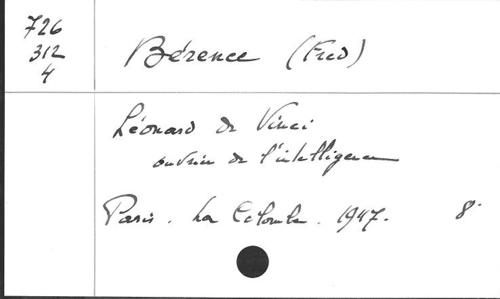 726
312
4
Bérence (Fred)
Léonard de Vinci
ouvrier de l'intelligence
Paris. La Colombe. 1947. 8°